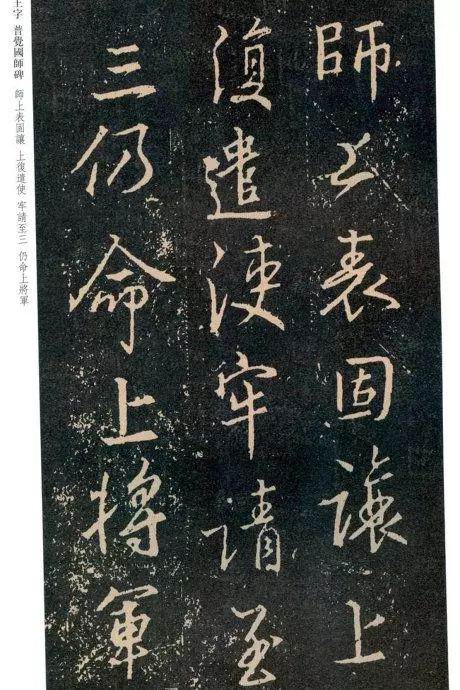 師上表固讓上
復遣使牢請至
三仍命上將軍
王字 普覺國師碑 師上表固讓 上復遣使 牢請至三 仍命上將軍